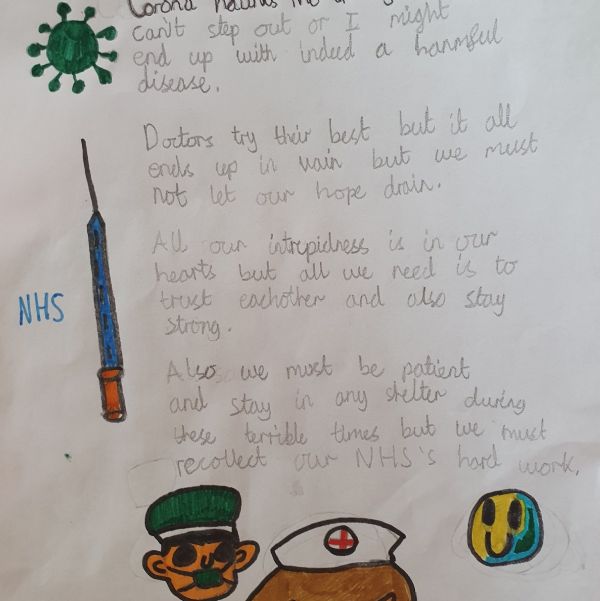 Corona
can't step out or I might
end up with indeed a harmful
disease.
Doctors try their best but it all
ends up in vain but we must
not let our hope drain.
All our intrepidness is in our
hearts but all we need is to
trust eachother and also stay
strong.
NHS
Also we must be patient
and stay in any shelter during
these terrible times but we must
recollect our NHS's hard work.